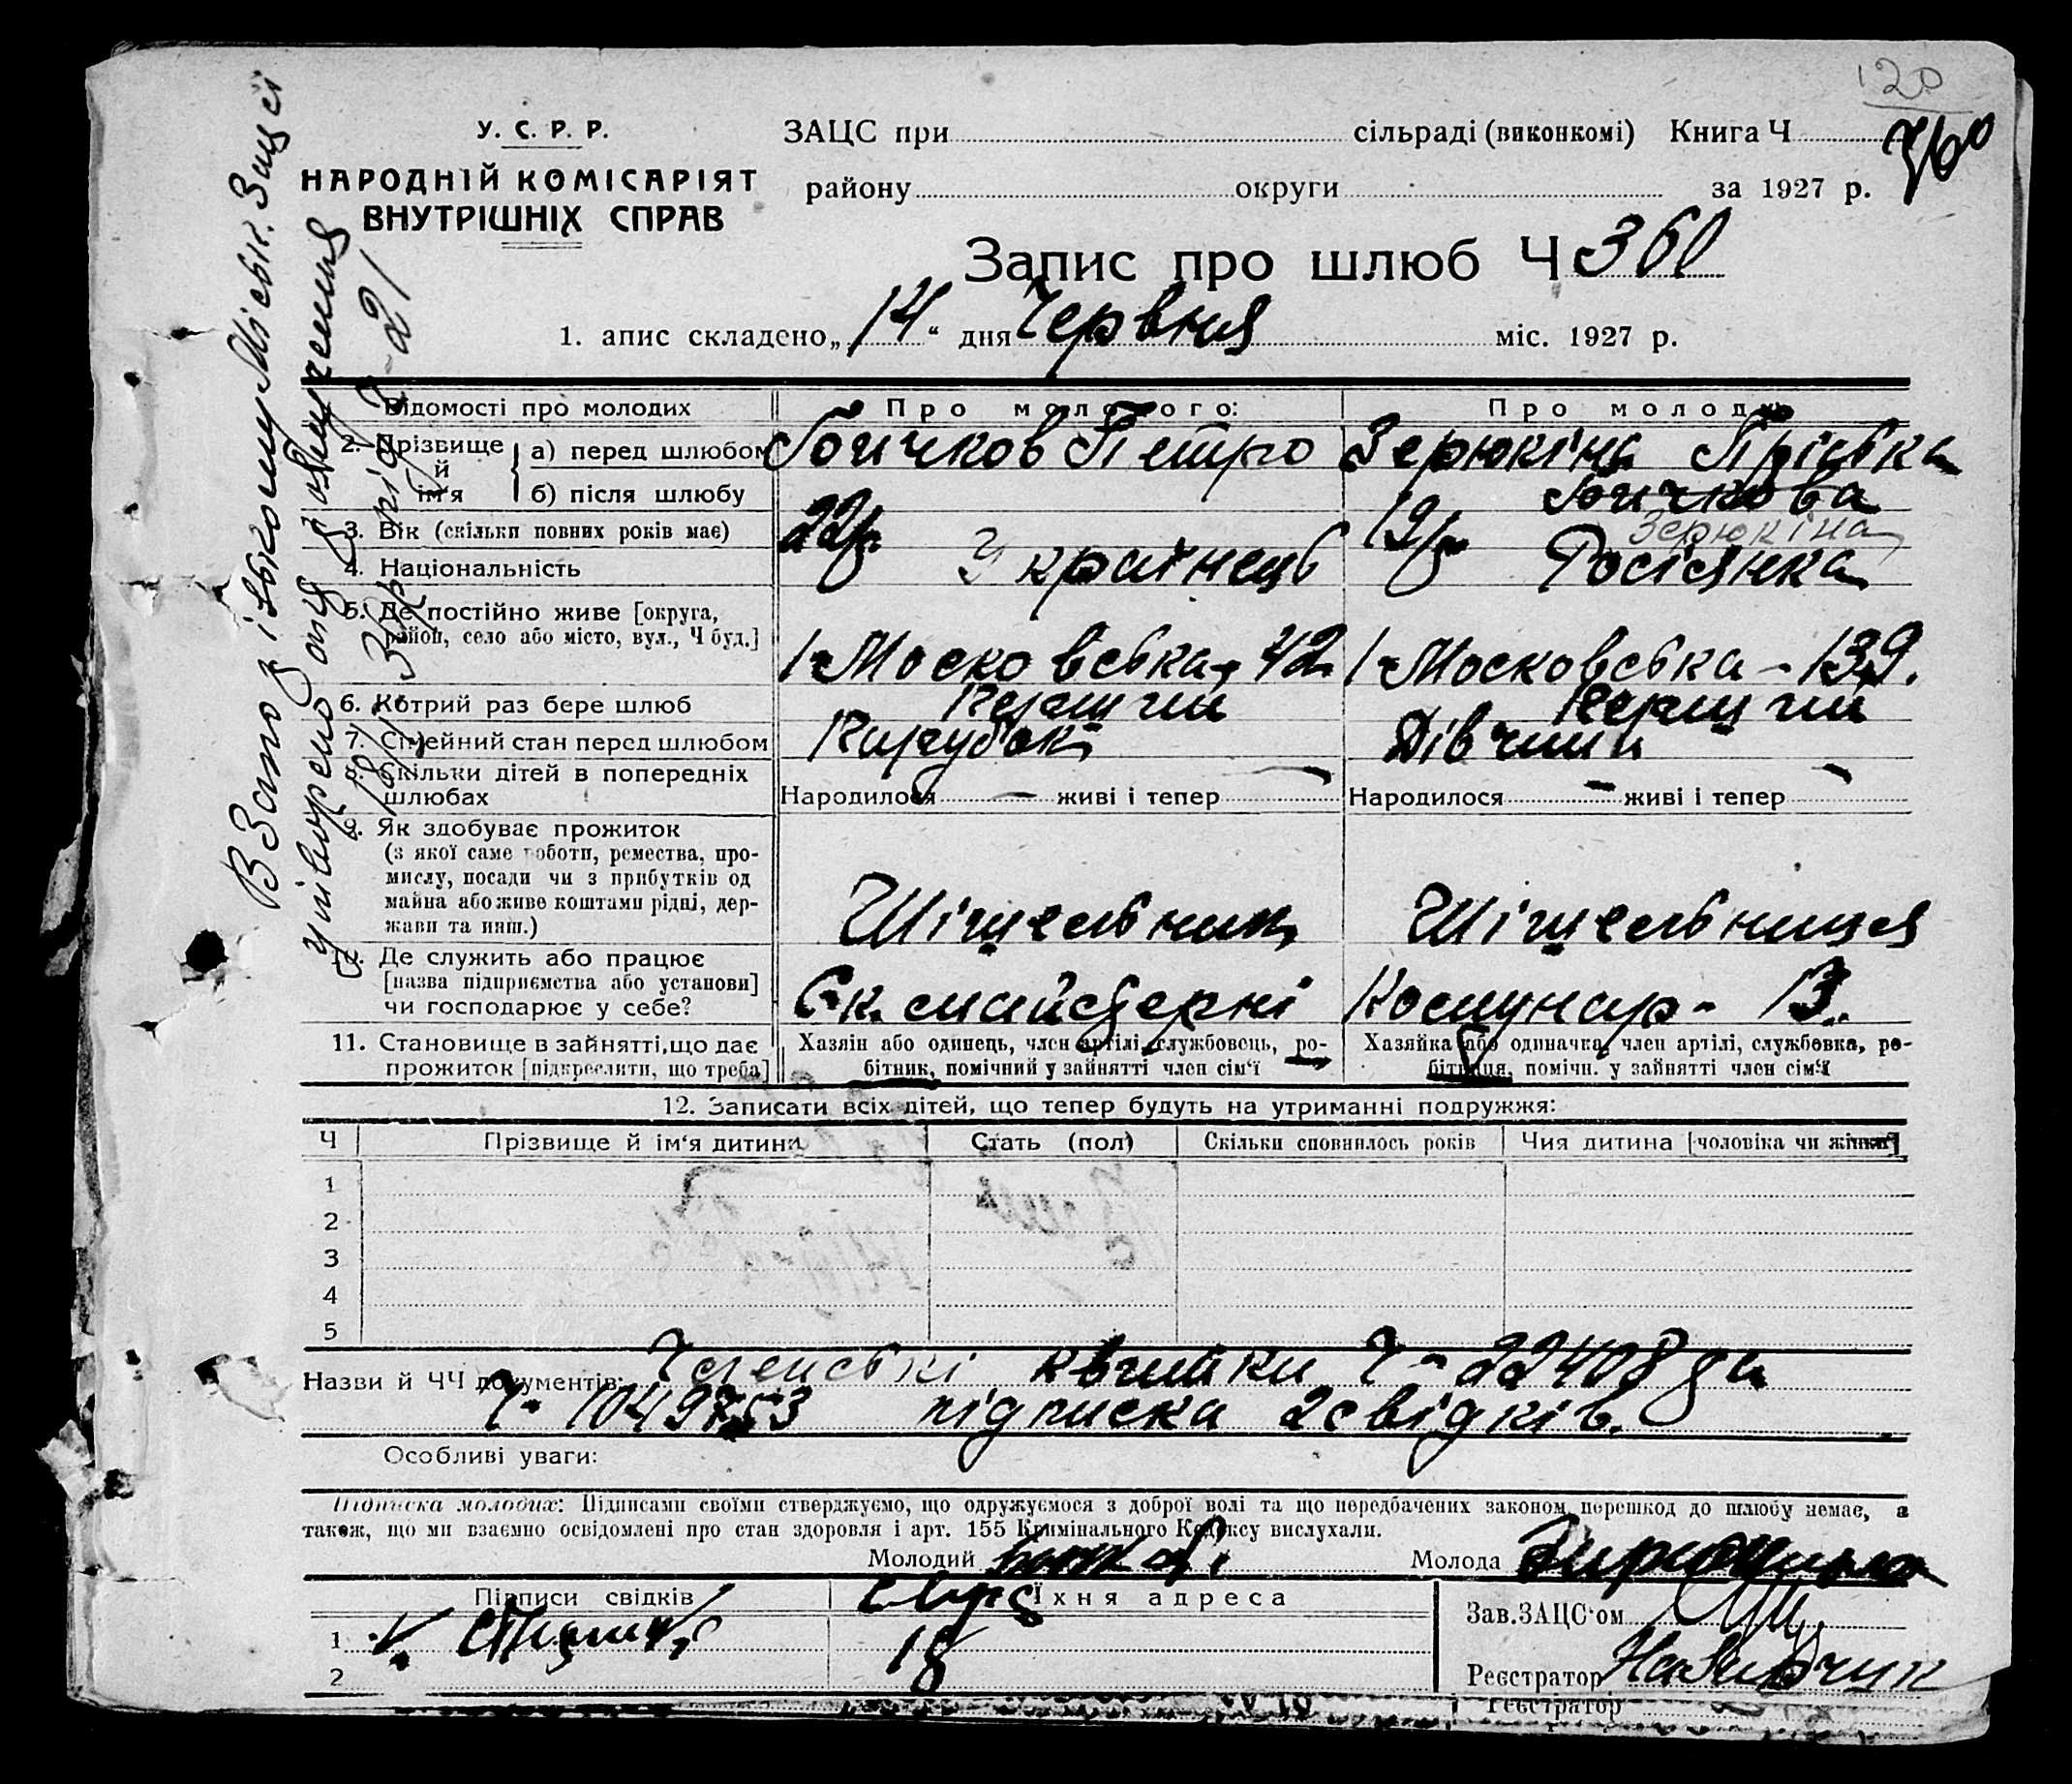 120
360
У. С. Р. Р.
НАРОДНІЙ КОМІСАРІЯТ
ВНУТРІШНІХ СПРАВ
ЗАЦС при сільраді (виконкомі) Книга Ч
району округи за 1927 р.
Запис про шлюб Ч 360
1. апис складено „14“ дня Червня міс. 1927 р.
Відомості про молодих
Про молодого:
Про молоду
2. Прізвище й ім'я
а) перед шлюбом
Петро
Зерюкіна Пріська
б) після шлюбу
Зерюкіна
3. Вік (скільки повних років має)
22р
19р
4. Національність
Українець
Росіянка
5. Де постійно живе [округа, район, село або місто, вул., Ч буд.]
1 Московська, 42
1 Московська - 139.
6. Котрий раз бере шлюб
Перший
Перший
7. Сімейний стан перед шлюбом
Парубок
Дівчина
8. Скільки дітей в попередніх шлюбах
Народилося — живі і тепер —
Народилося — живі і тепер —
9. Як здобуває прожиток
(з якої саме роботи, ремества, промислу, посади чи з прибутків од майна або живе коштами рідні, держави та инш.)
10. Де служить або працює
[назва підприємства або установи]
чи господарює у себе?
майстерні
Комунар - 13.
11. Становище в зайнятті, що дає
прожиток [підкреслити, що треба]
Хазяїн або одинець, член артілі, службовець, робітник, помічний у зайнятті член сім‘ї
Хазяйка або одиначка, член артілі, службовка, робітниця, помічн. у зайнятті член сім‘ї
12. Записати всіх дітей, що тепер будуть на утриманні подружжя:
Ч
Прізвище й ім‘я дитини
Стать (пол)
Скільки сповнилось років
Чия дитина [чоловіка чи жінки]
1
2
3
4
5
Назви й ЧЧ документів: Членські квитки Ч - 22408 да
Ч - 1049753 підписка 2 свідків.
Особливі уваги:
Підписка молодих: Підписами своїми стверджуємо, що одружуємося з доброї волі та що передбачених законом перешкод до шлюбу немає, а
також, що ми взаємно освідомлені про стан здоровля і арт. 155 Кримінального Кодексу вислухали.
Молодий
Молода
Підписи свідків
Їхня адреса
1
18
2
Зав. ЗАЦС‘ом
Реєстратор
Реєстратор